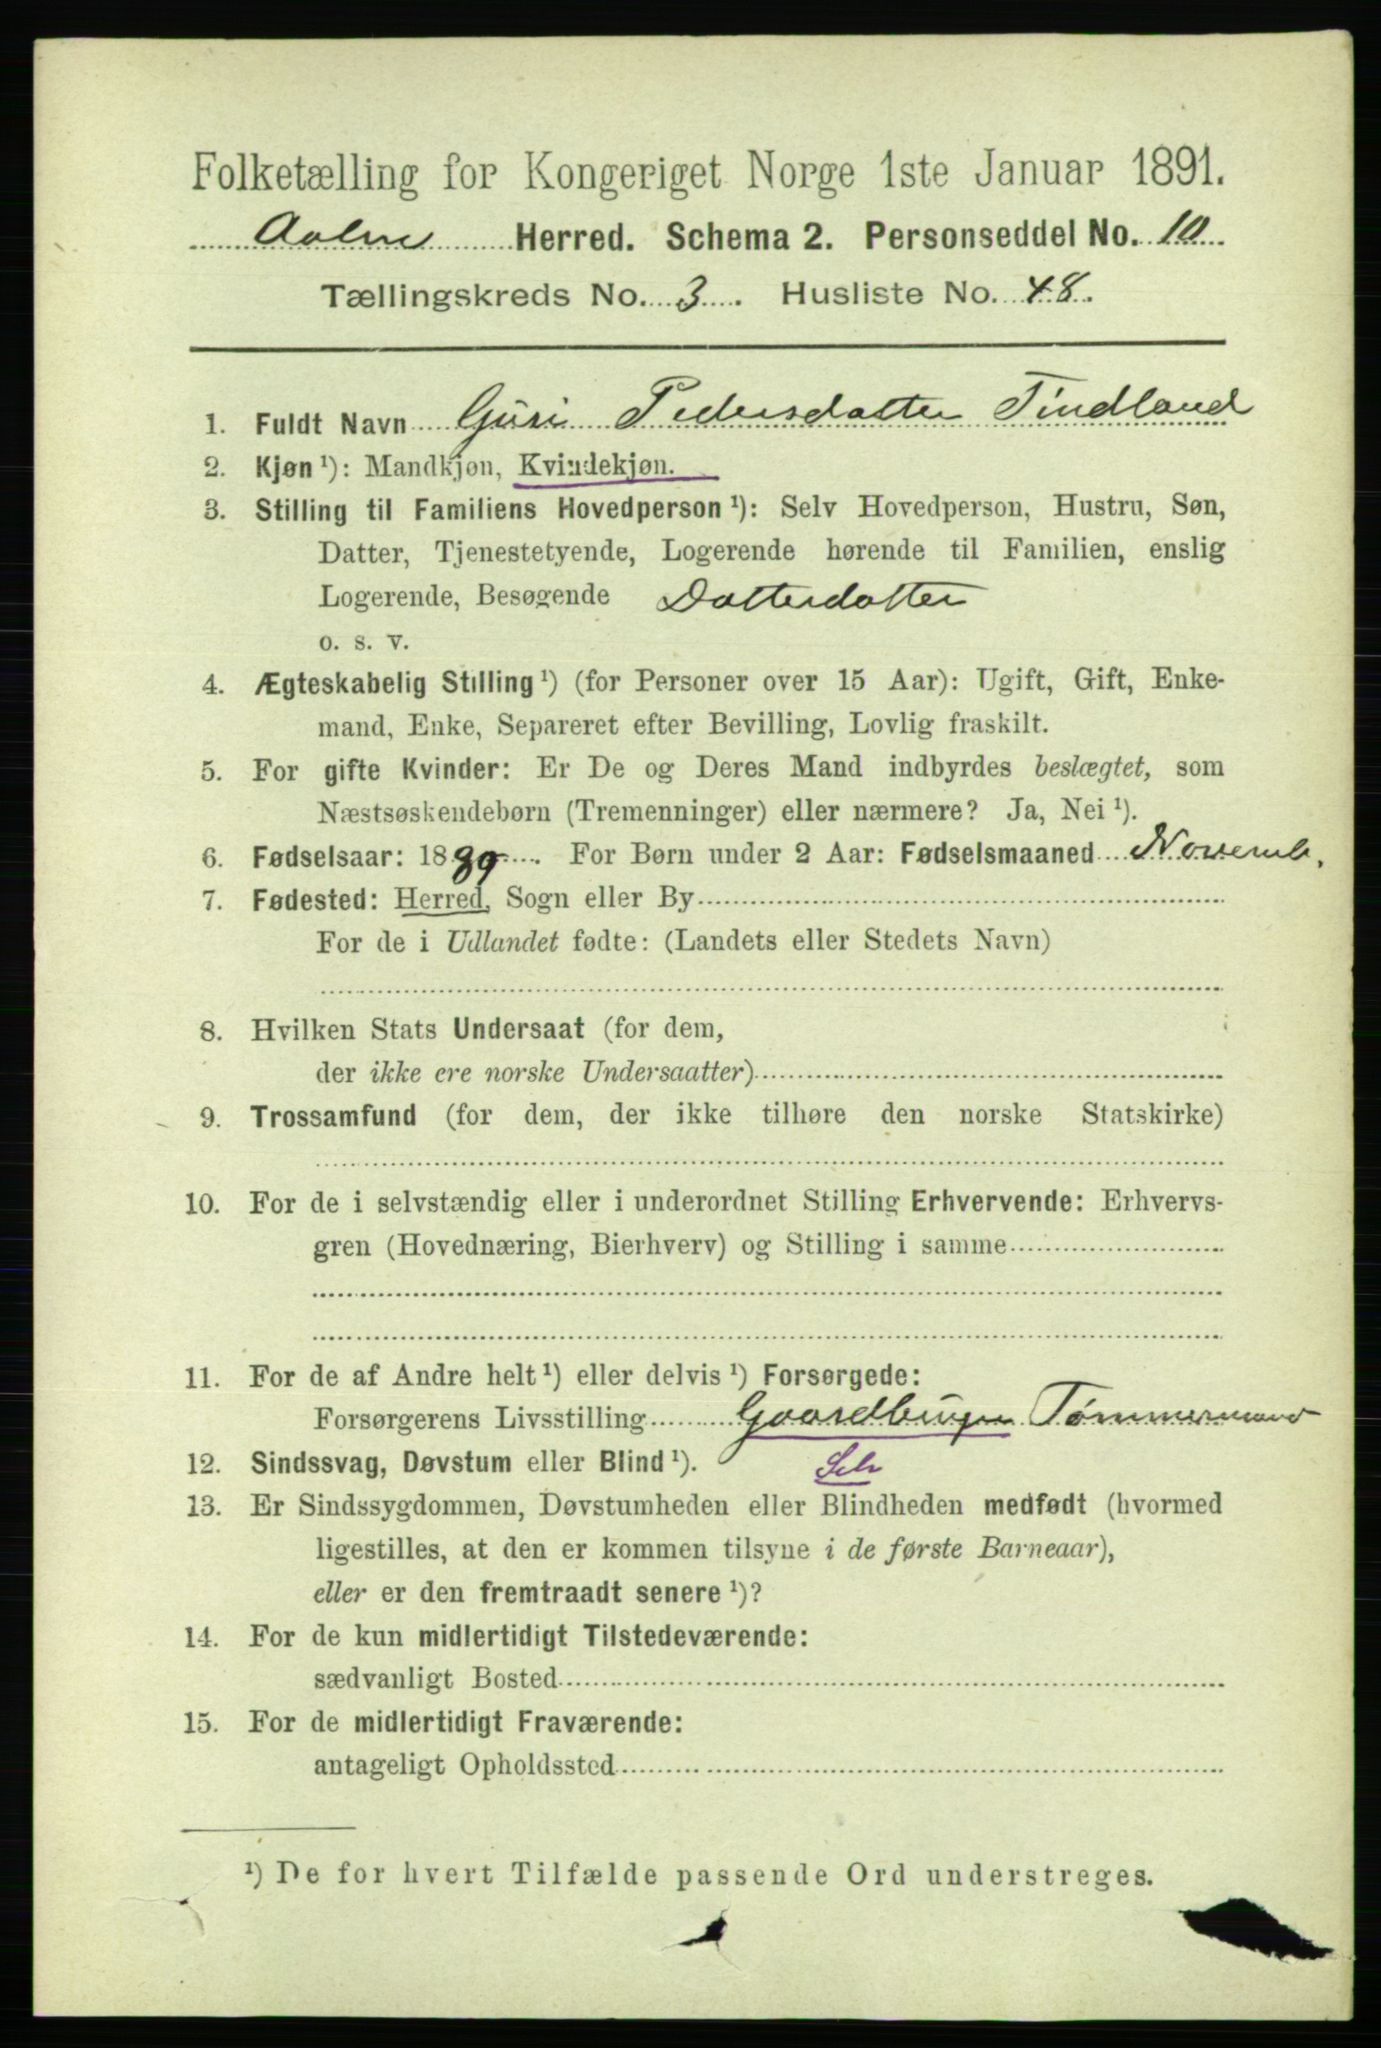 Folketælling for Kongeriget Norge 1ste Januar 1891.
Herred. Schema 2. Personseddel No. 10
Tællingskreds No. 3. Husliste No. 48.
1. Fuldt Navn Guri Pedersdatter Tindland
2. Kjøn ¹): Mandkjøn, Kvindekjøn.
3. Stilling til Familiens Hovedperson ¹): Selv Hovedperson, Hustru, Søn,
Datter, Tjenestetyende, Logerende hørende til Familien, enslig
Logerende, Besøgende Datterdatter
o. s. v.
4. Ægteskabelig Stilling ¹) (for Personer over 15 Aar): Ugift, Gift, Enke-
mand, Enke, Separeret efter Bevilling, Lovlig fraskilt.
5. For gifte Kvinder: Er De og Deres Mand indbyrdes beslægtet, som
Næstsøskendebørn (Tremenninger) eller nærmere? Ja, Nei ¹).
6. Fødselsaar: 1889. For Børn under 2 Aar: Fødselsmaaned Novemb.
7. Fødested: Herred, Sogn eller By
For de i Udlandet fødte: (Landets eller Stedets Navn)
8. Hvilken Stats Undersaat (for dem,
der ikke ere norske Undersaatter)
9. Trossamfund (for dem, der ikke tilhøre den norske Statskirke)
10. For de i selvstændig eller i underordnet Stilling Erhvervende: Erhvervs-
gren (Hovednæring, Bierhverv) og Stilling i samme
11. For de af Andre helt ¹) eller delvis ¹) Forsørgede:
Forsørgerens Livsstilling Gaardbruger Tømmermand
12. Sindssvag, Døvstum eller Blind ¹). Selv
13. Er Sindssygdommen, Døvstumheden eller Blindheden medfødt (hvormed
ligestilles, at den er kommen tilsyne i de første Barneaar),
eller er den fremtraadt senere ¹)?
14. For de kun midlertidigt Tilstedeværende:
sædvanligt Bosted
15. For de midlertidigt Fraværende:
antageligt Opholdssted
¹) De for hvert Tilfælde passende Ord understreges.